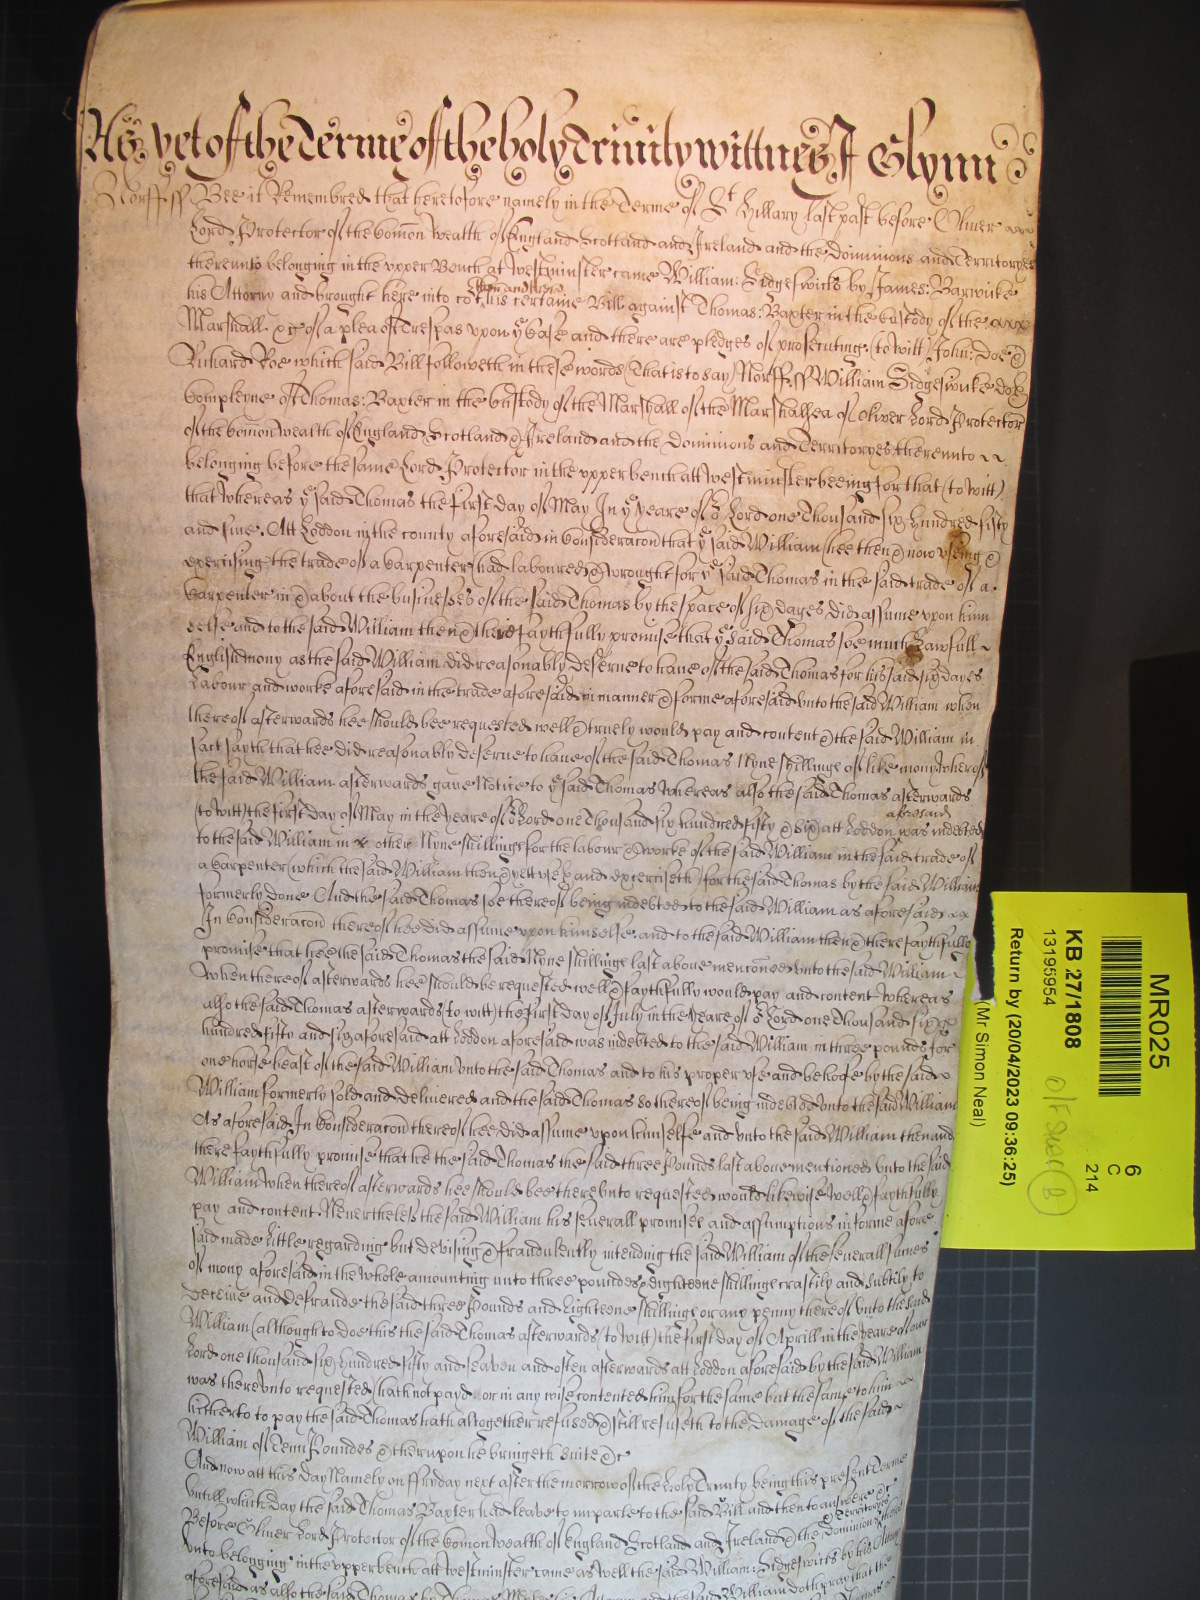 As yet of the Terme of the holy Trinity wittnes J Glynn
Norff ss Bee it Remembred that heretofore namely in the Terme of St Hillary last past before Oliver
Lord Protector of the Comon wealth of England Scotland and Ireland and the Dominions and Territoryes
thereunto belonging in the upper Bench at Westminster came William: Sidgeswicke by James: Barwicke
his Attorny and brought here into cort his certaine Bill against Thomas: Baxter in the Custody of the
Marshall: &c of a plea of Trespas upon ye Case and there are pledges of prosecuting (to witt) John: Doe &
Richard Roe which said Bill followeth in these words (That is to say) Norff. ss William Sidgeswicke doth
Compleyne of Thomas: Baxter in the Custody of the Marshall of the Marshalsea of Oliver Lord Protector
of the Comon wealth of England Scotland & Ireland and the Dominions and Territoryes thereunto
belonging before the same Lord Protector in the upper bench att Westminster beeing for that (to witt)
that Whereas ye said Thomas the first day of May In ye yeare of or Lord one Thousand six hundred fifty
and five. Att Loddon in the county aforesaid in Consideracon that ye said William (hee then & now useing &
exercising the trade of a Carpenter) had laboured & wrought for ye said Thomas in the said trade of a
Carpenter in & about the businesses of the said Thomas by the space of six dayes did assume upon him
selfe and to the said William then & there faythfully promise that ye said Thomas soe much Lawfull
English mony as the said William did reasonably deserve to have of the said Thomas for his said six dayes
Labour and worke aforesaid in the trade aforesaid in manner & forme aforesaid unto the said William when
thereof afterwards hee should bee requested well & truely would pay and content & the said William in
fact sayth that hee did reasonably deserve to have of the said Thomas Nyne shillings of like mony whereof
the said William afterwards gave Notice to ye said Thomas Whereas also the said Thomas afterwards
(to witt) the first day of May in the yeare of or Lord one Thousand six hundred fifty & six att Loddon aforesaid was indebted
to the said William in other Nyne shillings for the labour & worke of the said William in the said trade of
a Carpenter (which the said William then & yett useth and exerciseth) for the said Thomas by the said William
formerly done And the said Thomas soe thereof being indebted to the said William as aforesaid
In Consideracon thereof hee did assume upon himselfe and to the said William then & there faythfully
promise that hee the said Thomas the said Nyne shillings last above mencōned unto the said William
When thereof afterwards hee should be requested well & faythfully would pay and content Whereas
also the said Thomas afterwards (to witt) the first Day of July in the yeare of or Lord one Thousand six
hundred fifty and six aforesaid att Loddon aforesaid was indebted to the said William in three pounds for
one horse beast of the said William unto the said Thomas and to his proper use and behoofe by the said
William formerly sold and delivered and the said Thomas so thereof being indebted unto the said William
As aforesaid In Consideracon thereof hee did assume upon himselfe and unto the said William then and
there faythfully promise that he the said Thomas the said three Pounds last above mentioned unto the said
William When thereof afterwards hee should bee thereunto requested would likewise Well & faythfully
pay and content Neverthelesse the said William his severall promises and assumptions in forme afore
said made Little regarding but devising & fraudulently intending the said William of the severall summes
of mony aforesaid in the whole amounting unto three poundes & Eighteene shillings craftily and subtily to
Deceive and Defraude the said three Pounds and Eighteene shillings or any penny thereof unto the said
William (although to doe this the said Thomas afterwards (to witt) the first day of Aprill in the yeare of our
Lord one thousand six hundred fifty and seaven and often afterwards att Loddon aforesaid by the said William
was thereunto requested) hath not payd or in any wise contented him for the same but the same to him
hitherto to pay the said Thomas hath altogether refused & still refuseth to the damage of the said
William of Tenn Poundes & therupon he bringeth suite &c
And now att this day Namely on ffryday next after the morrow of the Holy Trinity being this present Terme
untill which Day the said Thomas Baxter had leave to imparle to the said Bill and then to answere &c
Before Oliver Lord Protector of the Comon wealth of England Scotland and Ireland & the Dominions & Territoryes there
unto belonging in the upper bench att Westminster came as well the said William: Sidgeswicke by his Attorny
aforesaid as also the said Thomas by Thomas
MR025
6
C
214
KB 27/1808
13195954
Return by (20/04/2023 09:36:25)
(Mr Simon Neal)